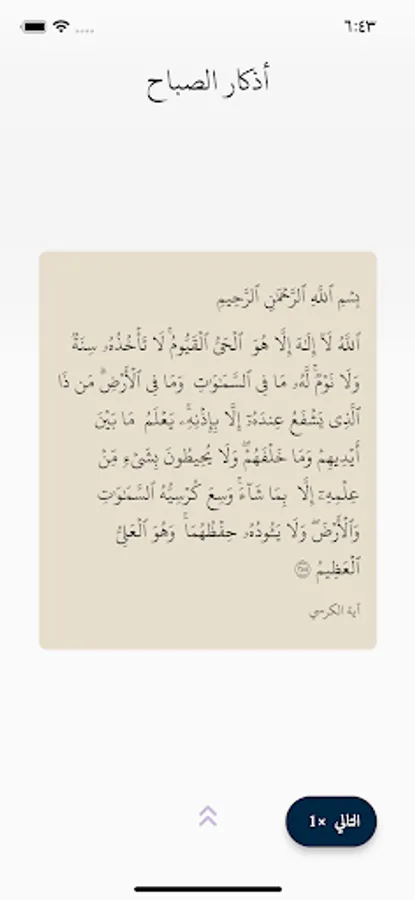 ٦:٤٣
أذكار الصباح
بِسْمِ ٱللَّهِ ٱلرَّحْمَٰنِ ٱلرَّحِيمِ
ٱللَّهُ لَآ إِلَٰهَ إِلَّا هُوَ ٱلْحَىُّ ٱلْقَيُّومُ ۚ لَا تَأْخُذُهُۥ سِنَةٌ
وَلَا نَوْمٌ ۚ لَّهُۥ مَا فِى ٱلسَّمَٰوَٰتِ وَمَا فِى ٱلْأَرْضِ ۗ مَن ذَا
ٱلَّذِى يَشْفَعُ عِندَهُۥٓ إِلَّا بِإِذْنِهِۦ ۚ يَعْلَمُ مَا بَيْنَ
أَيْدِيهِمْ وَمَا خَلْفَهُمْ ۖ وَلَا يُحِيطُونَ بِشَىْءٍ مِّنْ
عِلْمِهِۦٓ إِلَّا بِمَا شَآءَ ۚ وَسِعَ كُرْسِيُّهُ ٱلسَّمَٰوَٰتِ
وَٱلْأَرْضَ ۖ وَلَا يَـُٔودُهُۥ حِفْظُهُمَا ۚ وَهُوَ ٱلْعَلِىُّ
ٱلْعَظِيمُ ۝٢٥٥
آية الكرسي
التالي ×1